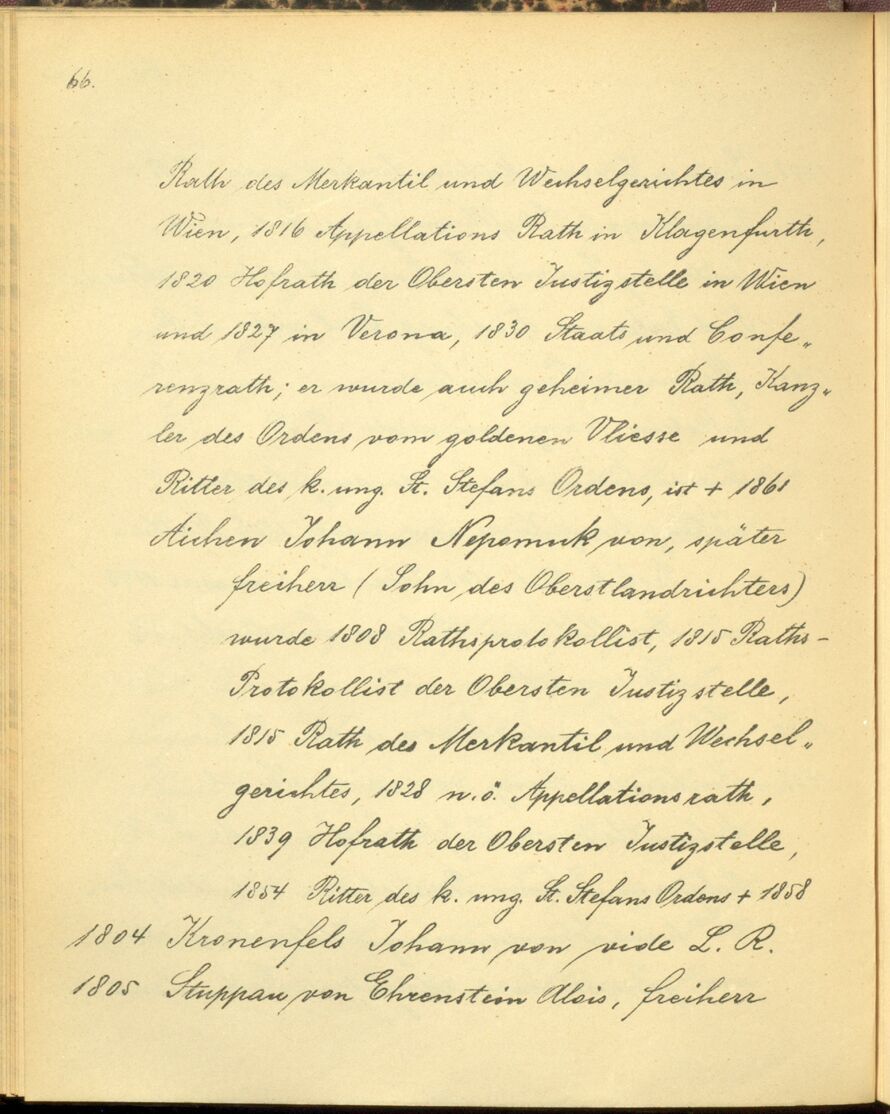 66.
Rath des Merkantil und Wechselgerichtes in
Wien, 1816 Appellations Rath in Klagenfurth,
1820 Hofrath der Obersten Justizstelle in Wien
und 1827 in Verona, 1830 Staats und Confe„
renzrath; er wurde auch geheimer Rath, Kanz„
ler des Ordens vom goldenen Vliesse und
Ritter des k. ung. St. Stefans Ordens, ist + 1861
Aichen Johann Nepomuk von, später
freiherr (Sohn des Oberstlandrichters)
wurde 1808 Rathsprotokollist, 1815 Raths-
Protokollist der Obersten Justizstelle,
1815 Rath des Merkantil und Wechsel„
gerichtes, 1828 n. ö. Appellationsrath,
1839 Hofrath der Obersten Justizstelle,
1854 Ritter des k. ung. St. Stefans Ordens + 1858
1804 Kronenfels Johann von vide L. R.
1805 Stuppau von Ehrenstein Alois, freiherr